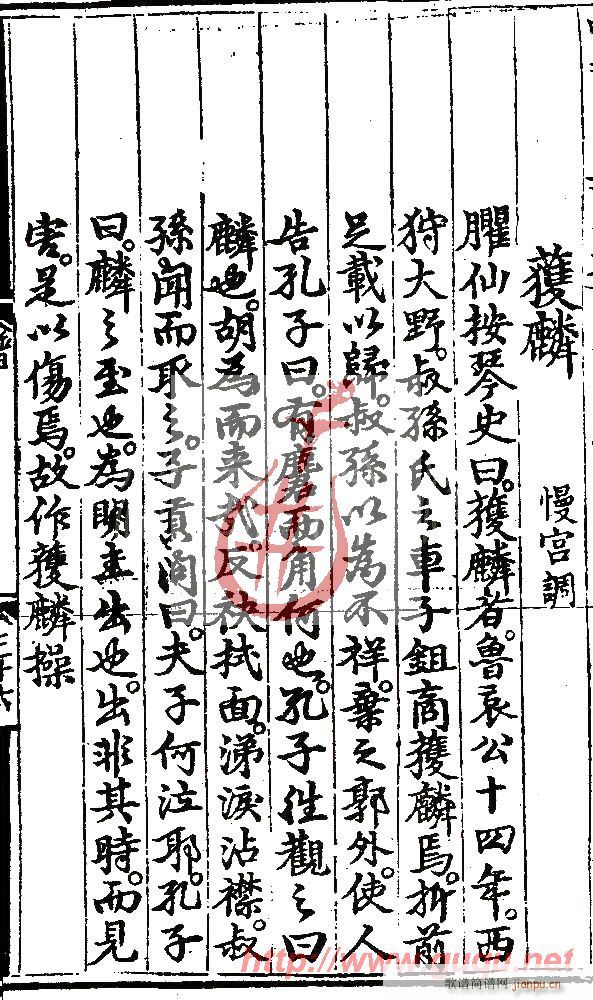 獲麟
慢宮調
臞仙按琴史曰。獲麟者。魯哀公十四年。西
狩大野。叔孫氏之車子鉏商獲麟焉。折前
足載以歸。叔孫以為不祥。棄之郭外。使人
告孔子曰。有麏而角何也。孔子往觀之曰
麟也。胡為而来哉。反袂拭面。涕淚沾襟。叔
孫聞而取之。子貢問曰。夫子何泣耶。孔子
曰。麟之至也。為明王出也。出非其時。而見
害。是以傷焉。故作獲麟操
http://www.guqu.net
歌谱简谱网
jianpu.cn